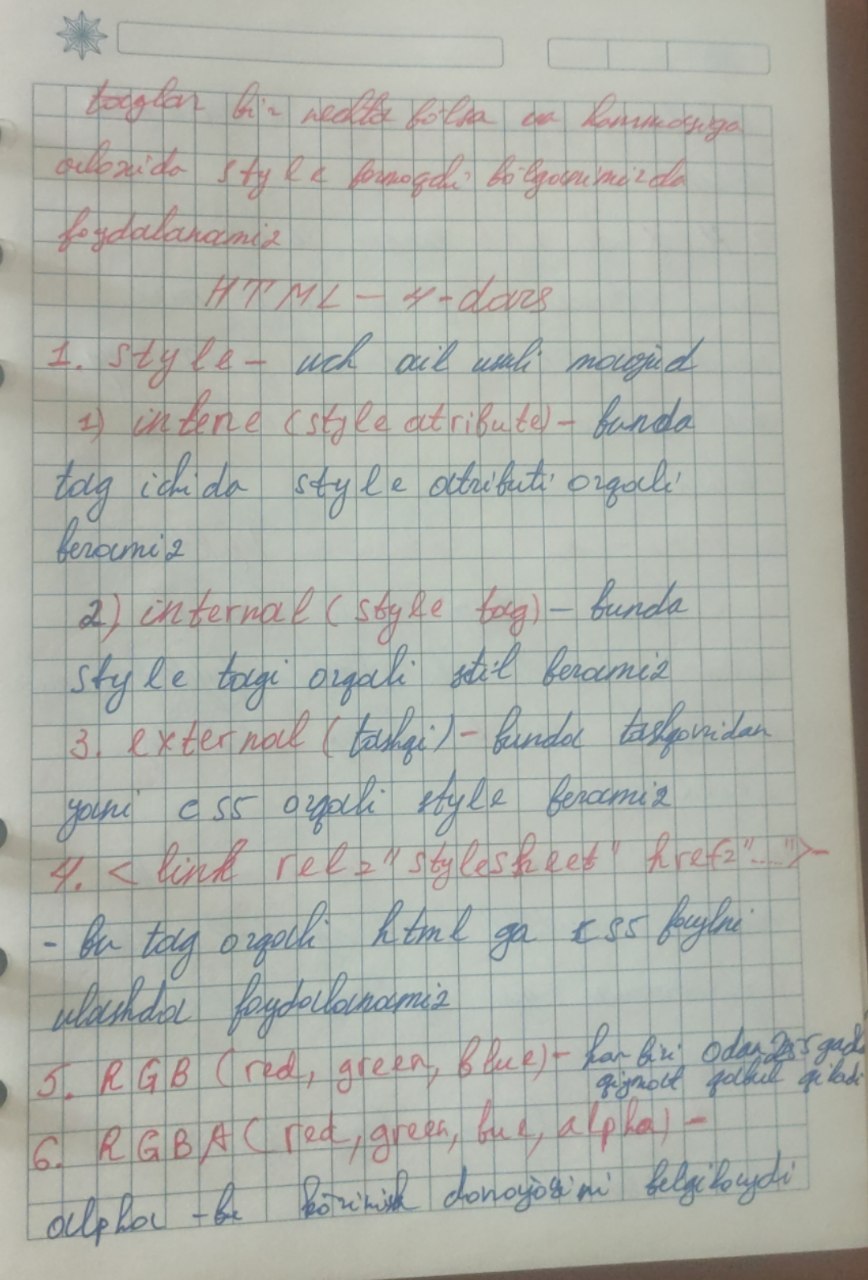 taglar bir nechta bo'lsa va hammasiga
aloxida style bermoqchi bo'lganimizda
foydalanamiz
HTML - 4-dars
1. style - uch xil usuli mavjud
1) inlene (style atribute) - bunda
tag ichida style atributi orqali
beramiz
2) internal (style tag) - bunda
style tagi orqali stil beramiz
3. external (tashqi) - bunda tashqaridan
yani css orqali style beramiz
4. < link rel="stylesheet" href="...."> -
- bu tag orqali html ga css faylni
ulashda foydalanamiz
5. RGB (red, green, blue) - har biri 0dan 255 gacha
qiymat qabul qiladi
6. RGBA (red, green, bue, alpha) -
alpha - bu ko'rinish darajasini belgilaydi